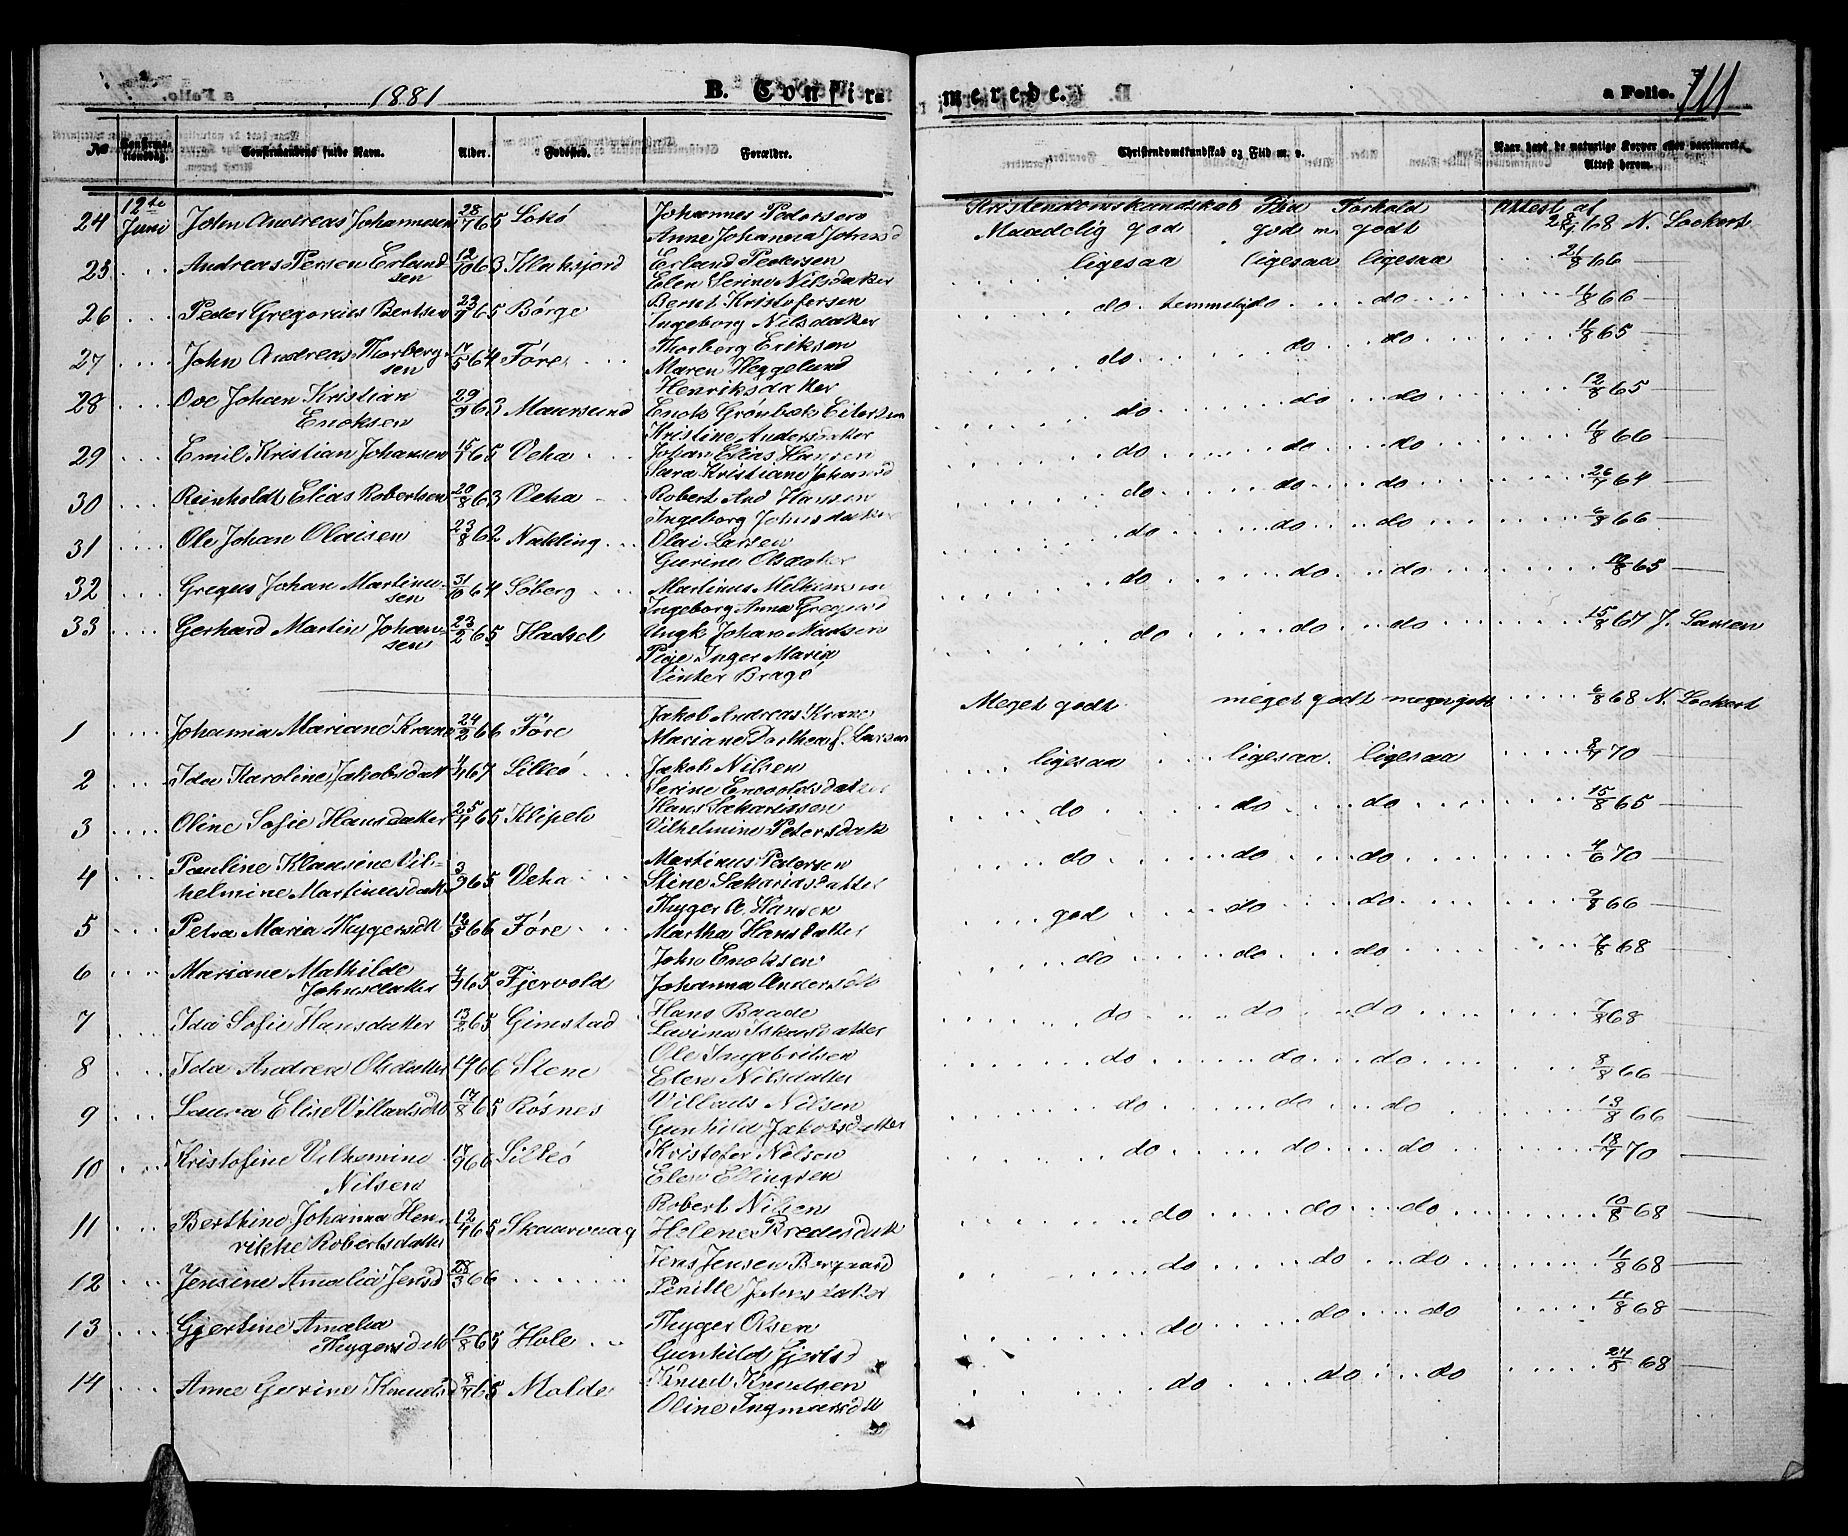 1881 B. Confir- merede. a Folio. 111
No Confirma-tionsdag. Confirmandens fulde Navn. Alder. Fødested. Forældre. Christendomskundskab og Flid m. v. Naar havt de naturlige Kopper eller vaccineret, Attest herom.
24 12te Juni John Andreas Johannesen 28/7 65 Sokö Johannes Pedersen Kristendomskundskab Flid Forhold Attest af
Anne Johanna Johnsd Maadelig god god m. godt 68 N. Lockert
25 Andreas Persen Erland-sen 12/10 63 Flaksjord Erland Pedersen ligesaa ligesaa ligesaa 21/8 66
Elen Serine Nilsdatter
26 Peder Gregorius Bertsen 23/9 65 Börge Bernt Kristofersen do temmelig do do 11/8 66
Ingeborg Nilsdatter
27 John Andreas Thorberg-sen 17/5 64 Före Thorberg Eriksen do do do 11/8 65
Maren Heggelund
Henriksdatter
28 Ove Johan Kristian Enoksen 29/9 63 Maursund Enok Grönbæk do do do 12/8 65
Kristine Andersdatter
29 Emil Kristian Johansen 15/7 65 Veha Johan Elias Hansen do do do 11/8 66
Sara Kristiane Johansd
30 Reinholdt Elias Robertsen 20/8 63 Veha Robert And Hansen do do do 26/7 64
Ingeborg Johnsdatter
31 Ole Johan Olaisen 23/8 62 Olai Larsen do do do 6/8 66
Gurine Olsdatter
32 Gregus Johan Martinu-sen 31/10 64 Söberg Martinus do do do 12/8 65
Ingeborg Anna Gregusd
33 Gerhard Martin Johan-sen 23/2 65 Hadsel Ungk Johan Madsen do do do 15/8 67 J. Larsen
Pige Inger Maria
Vinter Bragö
1 Johanna Mariane Krane 24/2 66 Före Jakob Andreas Krane Meget godt meget godt meget godt 6/8 68 N. Lockert
Mariane Dorthea f. Larsen
2 Ida Karoline Jakobsdatt 67 Jakob Nilsen ligesaa ligesaa ligesaa 70
Serine
3 Oline Sofie Hansdatter 25/4 65 Klipele Hans Sakariasen do do do 15/8 65
Vilhelmine Petersdatt
4 Pauline Klausine Vil-helmine Martinusdatt 3/9 65 Veha Martinus Pedersen do do do 4/6 70
Stine Sakariasdatter
5 Petra Maria Thygersdtt 12/3 66 Före Thyger A. Hansen god do do 9/8 66
Martha Hansdatter
6 Mariane Mathilde Johnsdatter 65 Fjervold John Enoksen do do do 7/8 68
Johanna Andersdtt
7 Ida Sofie Hansdatter 13/2 65 Gimstad Hans Baade do do do 7/8 68
Lavina Isksdatter
8 Ida Andrea Olsdatter 66 Stene Ole Ingebritsen do do do 8/8 66
Elen Nilsdatter
9 Laura Elise Villadsdtt 17/8 65 Rösnes Villads Nilsen do do do 13/8 66
Gunhild Jakobsdatter
10 Kristofine Vilhemine Nilsen 17/9 66 Kristofer Nilsen do do do 18/7 70
Elen Ellingsen
11 Berthine Johanna Hen-rikke Robertsdatter 12/4 65 Skaarvaag Robert Nilsen do do do 10/8 68
Helene Bredesdatt
12 Jensine Amalia Jensd 28/3 66 Jens Jensen do do do 11/8 68
Pernille Johnsdatter
13 Gjertine Amalia Thygersdtt 12/8 65 Hole Thyger Olsen do do do 11/8 68
Gunhild Gjertsd
14 Anne Gurine Knudsd 8/7 65 Molde Knud Knudsen do do do 24/8 68
Oline Ingmarsdtt